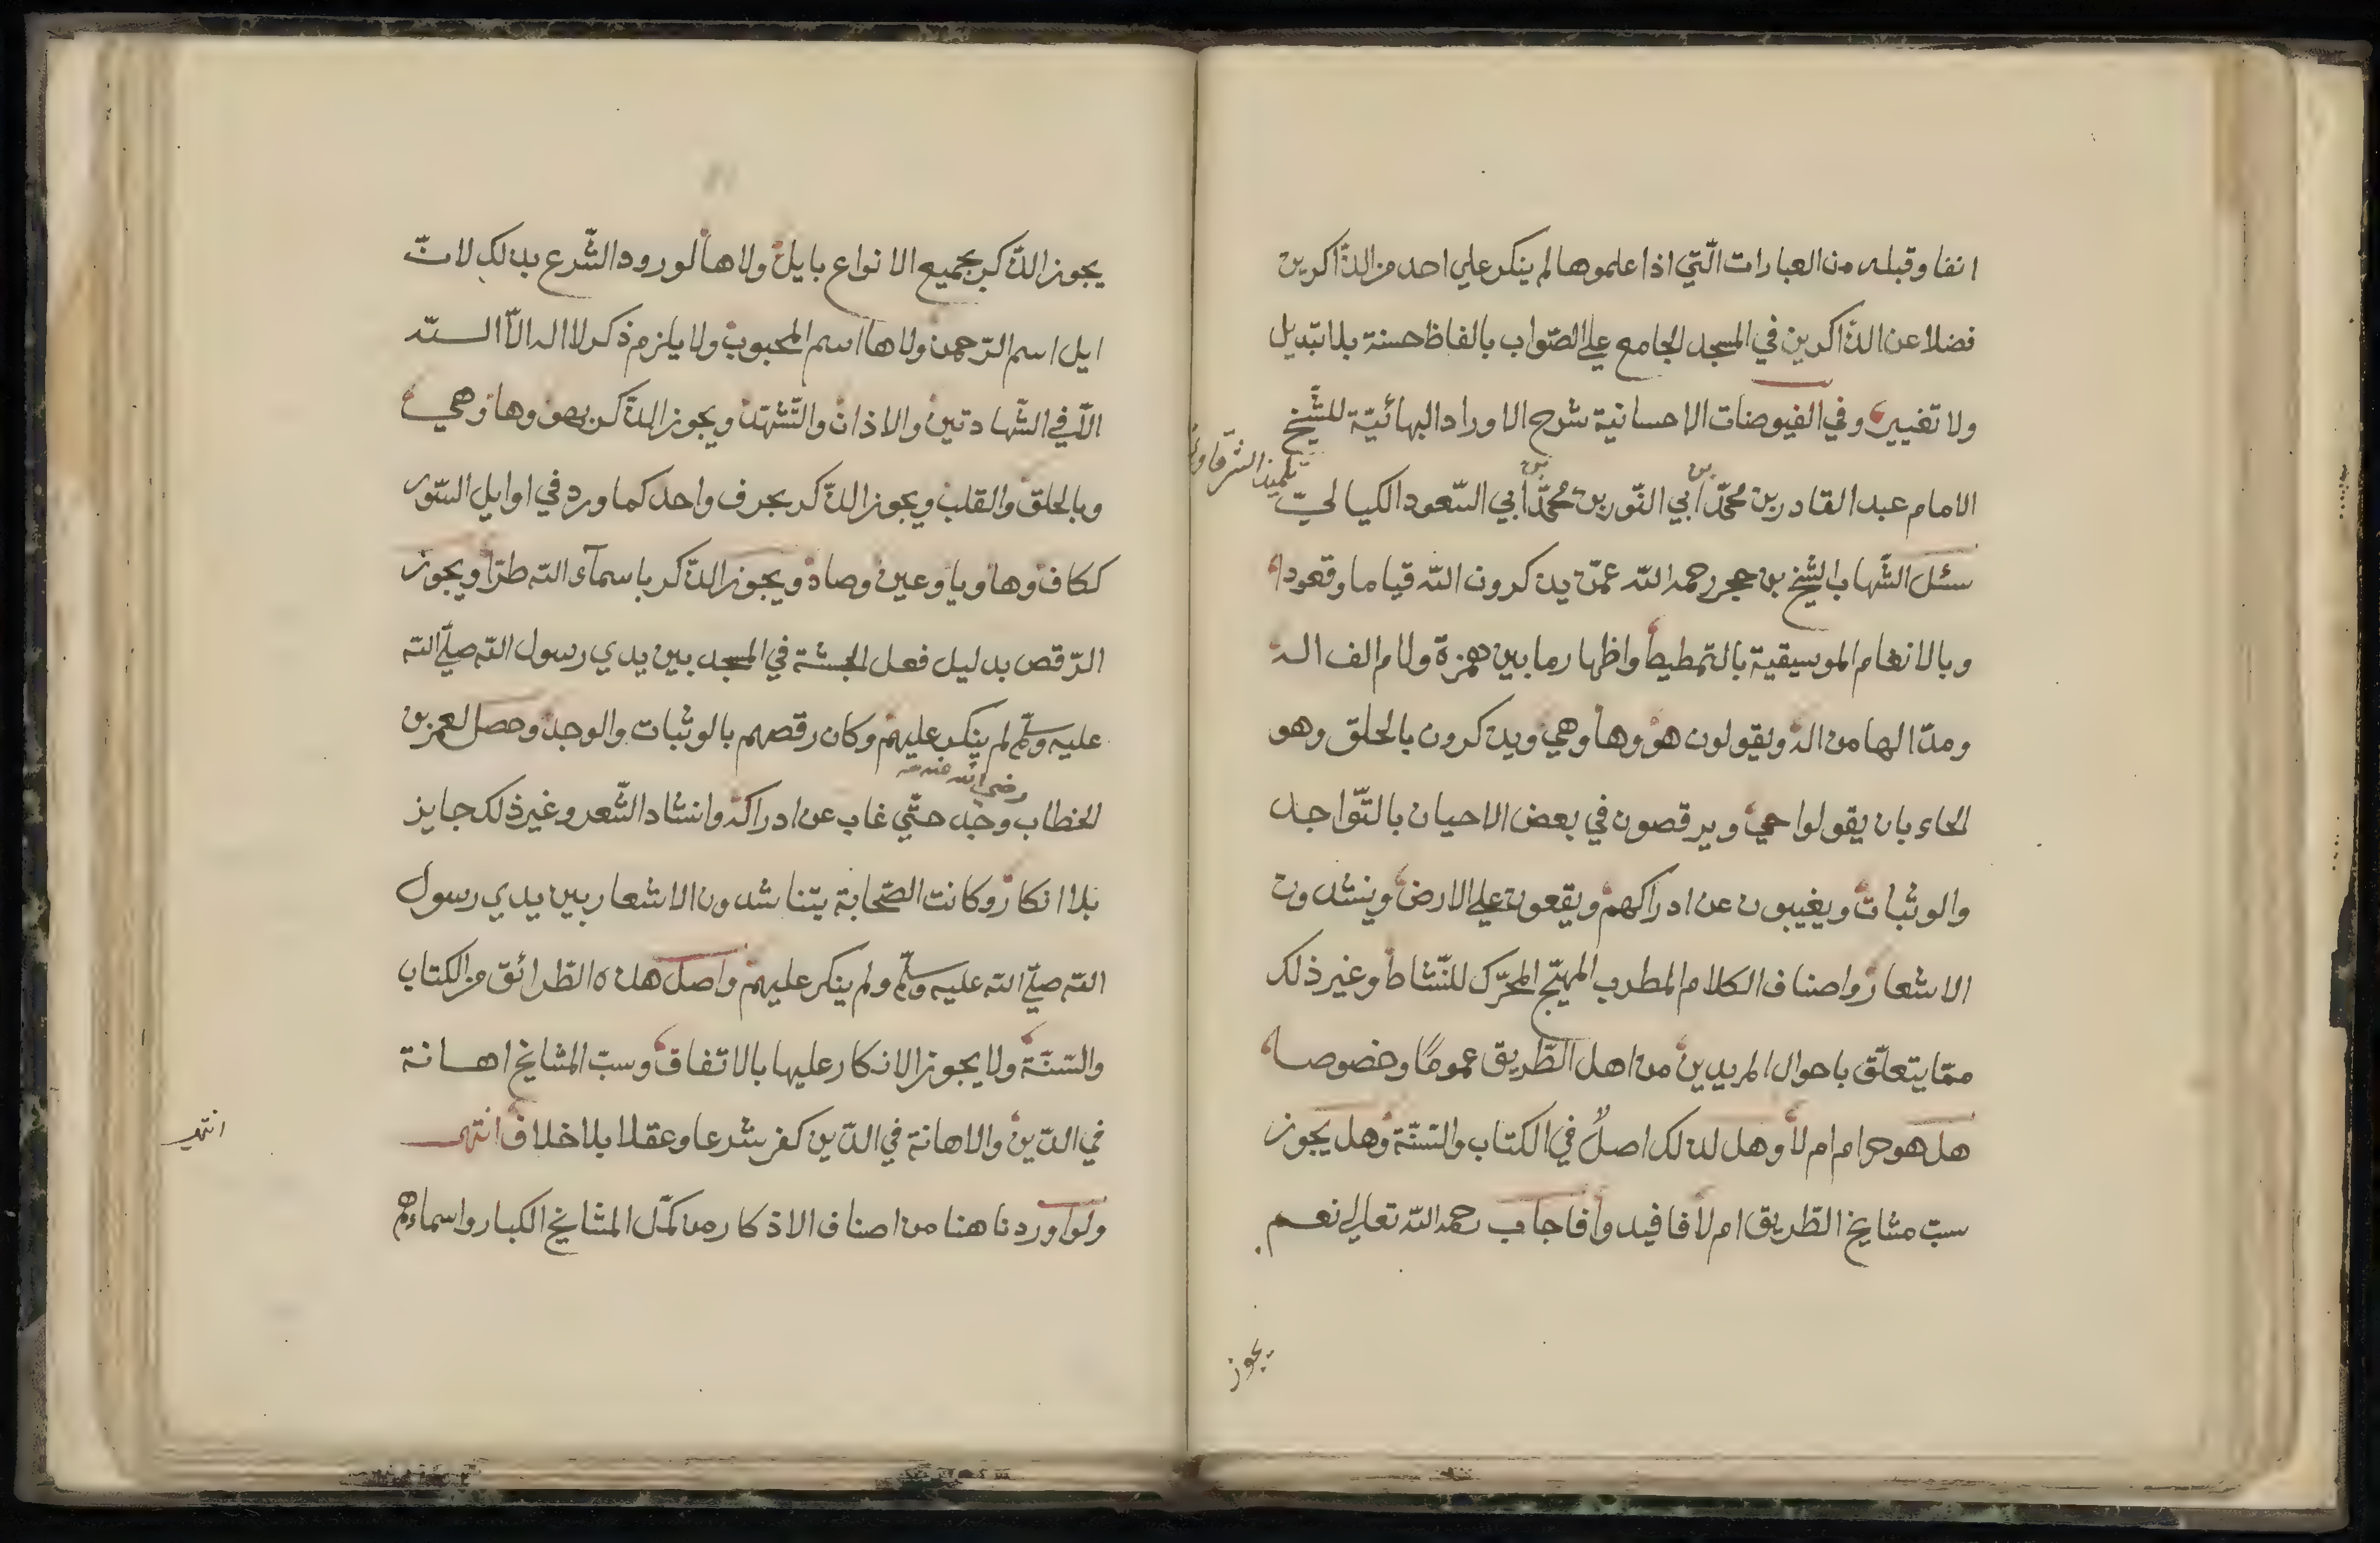 انفا وقبله من العبارات الّتي اذا علموها لم ينكر علي احد من الذّاكرين
فضلا عن الذّاكرين في المسجد الجامع علي الصّواب بالفاظ حسنة بلا تبديل
ولا تغيير وفي الفيوضات الاحسانية شرح الاوراد البهائيّة للشّيخ
تلميذ الشّرقاوي
الامام عبد القادر بن محمّد بن أبي النّور بن محمّد بن أبي السّعود الكيالي
سئل الشّهاب الشّيخ بن حجر رحمه اللّه عمّن يذكرون اللّه قياما وقعودا
وبالانغام الموسيقية بالتمطيط واظهار ما بين همزة ولام الف اله
ومدّ الها من اله ويقولون هو وها وهي ويذكرون بالحلق وهو
الحاء بان يقولوا حي ويرقصون في بعض الاحيان بالتّواجد
والوثبات ويغيبون عن ادراكهم ويقعون علي الارض وينشدون
الاشعار واصناف الكلام المطرب المهيّج المحرّك للنّشاط وغير ذلك
ممّا يتعلّق باحوال المريدين من اهل الطّريق عمومًا وخصوصا
هل هو حرام ام لا وهل لذلك اصلٌ في الكتاب والسّنّة وهل يجوز
سبّ مشايخ الطّريق ام لا فافيدوا فاجاب رحمه اللّه تعالي نعم
يجوز
يجوز الذّكر بجميع الانواع بايل ولاها لورود الشّرع بذلك لانّ
ايل اسم الرّحمن ولاها اسم المحبوب ولا يلزم ذكر لا اله الّا اللّه
الّا في الشّهادتين والاذان والتّشهّد ويجوز الذّكر بهو وها وهي
وبالحلق والقلب ويجوز الذّكر بحرف واحد كما ورد في اوايل السّور
ككاف وها ويا وعين وصاد ويجوز الذّكر باسمآء اللّه طرّا ويجوز
الرّقص بدليل فعل الحبشة في المسجد بين يدي رسول اللّه صلّي اللّه
عليه وسلّم لم ينكر عليهم وكان رقصهم بالوثبات والوجد وحصل لعمر بن
رضي الله عنه
الخطاب وجد حتّي غاب عن ادراكه وانشاد الشّعر وغير ذلك جايز
بلا انكار وكانت الصّحابة يتناشدون الاشعار بين يدي رسول
اللّه صلّي اللّه عليه وسلّم ولم ينكر عليهم واصل هذه الطّرائق من الكتاب
والسّنّة ولا يجوز الانكار عليها بالاتفاق وسبّ المشايخ اهانة
في الدّين والاهانة في الدّين كفر شرعا وعقلا بلا خلاف انتهي
انتهي
ولو اوردنا هنا من اصناف الاذكار من كمّل المشايخ الكبار واسماءهم